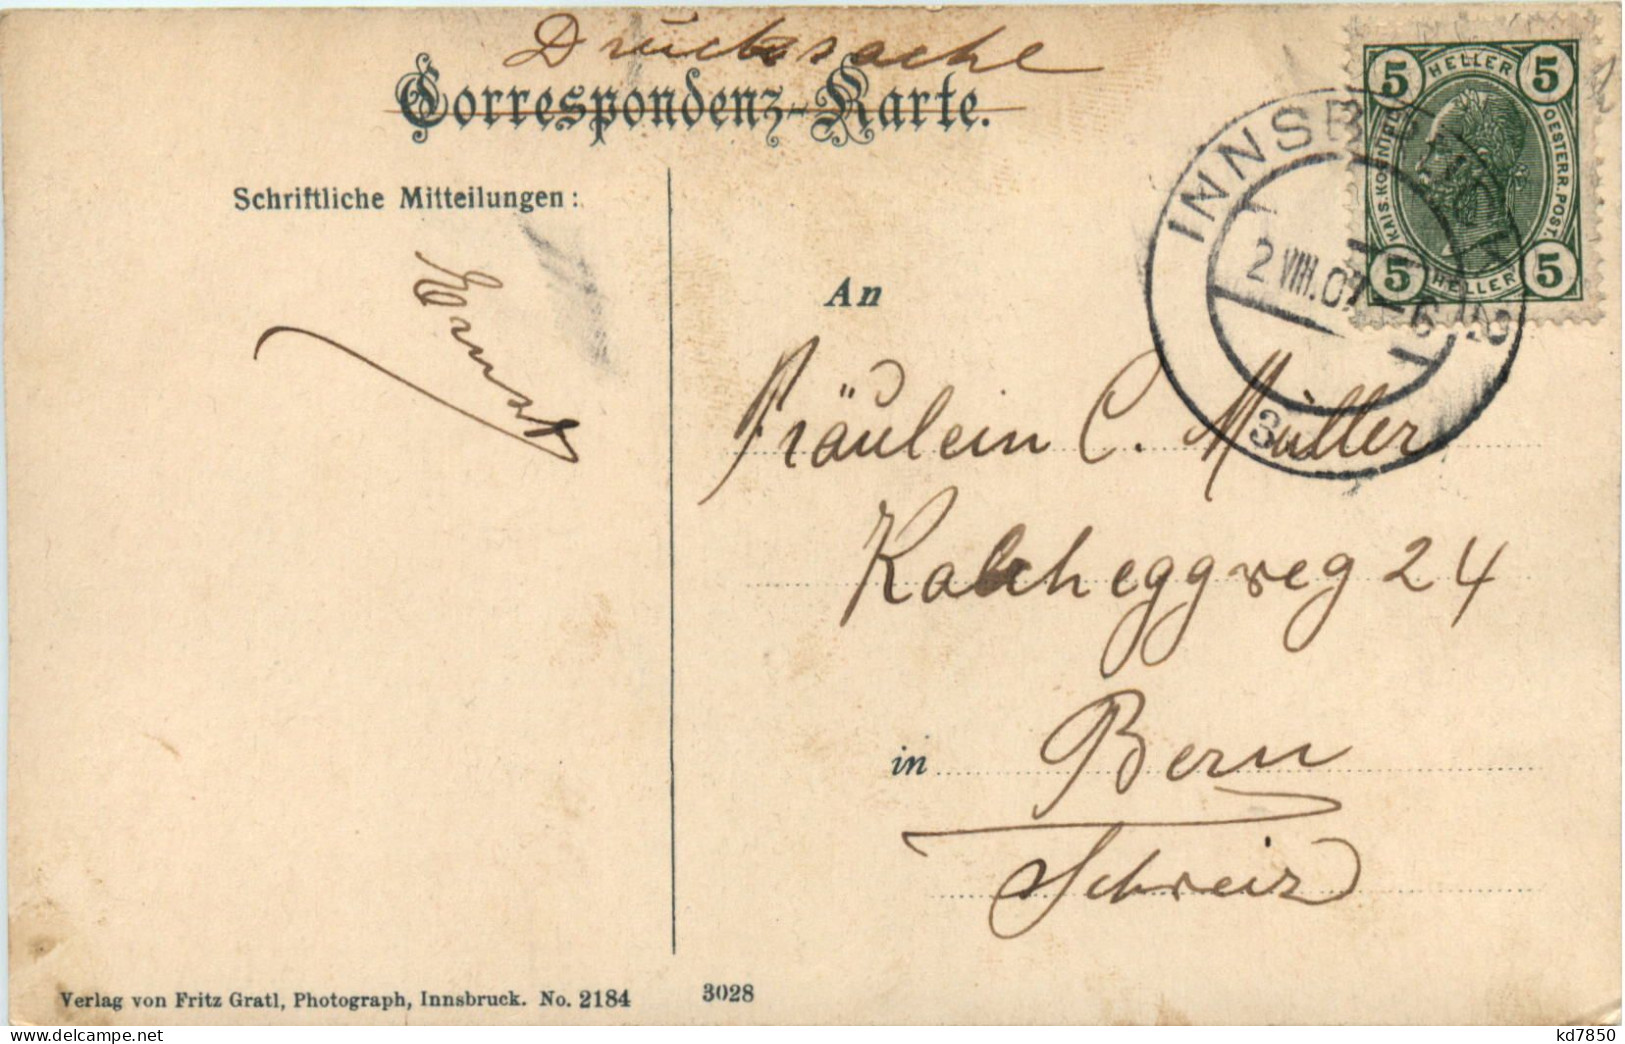 Drucksache
Correspondenz-Karte.
Schriftliche Mitteilungen:
Ernst
5 HELLER 5
KAIS. KOENIGL. OESTERR. POST.
5 HELLER 5
INNSBRUCK
2 VIII.07 -6
3
An
Fräulein C. Müller
Kalcheggweg 24
in Bern
Schweiz
Verlag von Fritz Gratl, Photograph, Innsbruck. No. 2184
3028
kd7850